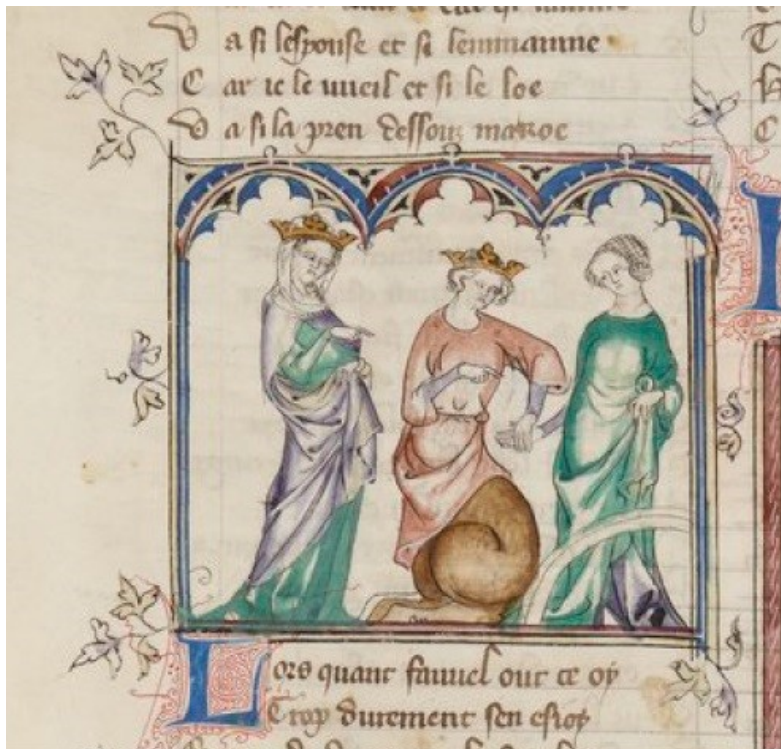 V a si lespouse et si lenmainne
C ar ie le vueil et si le loe
V a si la pren dessouz
Lors quant fauuel out ce oy
Trop durement sen esioy